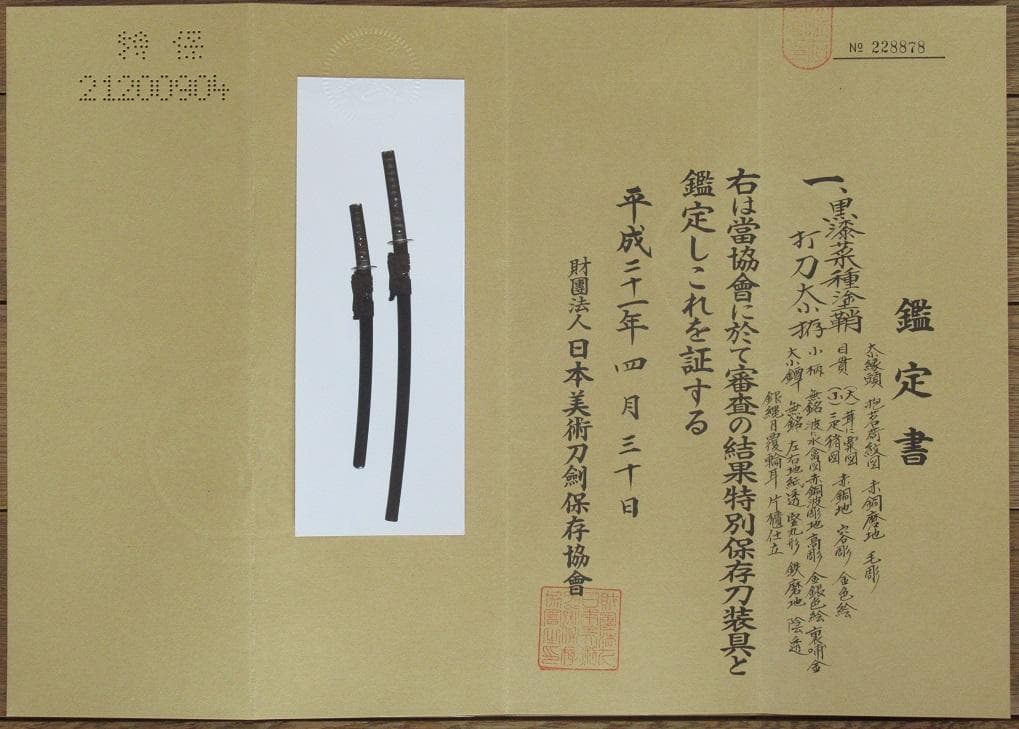 № 228878
鑑定書
一、黒漆菜種塗鞘
打刀大小拵
大小縁頭 抱茗荷紋図 赤銅磨地 毛彫
目貫 (大)茸に栗図 赤銅地 容彫 金色絵
(小)三疋猪図
小柄 無銘 波に水禽図 赤銅波彫地 高彫 金銀色絵 裏哺金
大小鐔 無銘 左右地紙透 竪丸形 鉄磨地 陰透
銀縄目覆輪耳 片櫃仕立
右は當協會に於て審査の結果特別保存刀装具と
鑑定しこれを証する
平成二十一年四月三十日
財團法人日本美術刀劍保存協會
特保
21200904